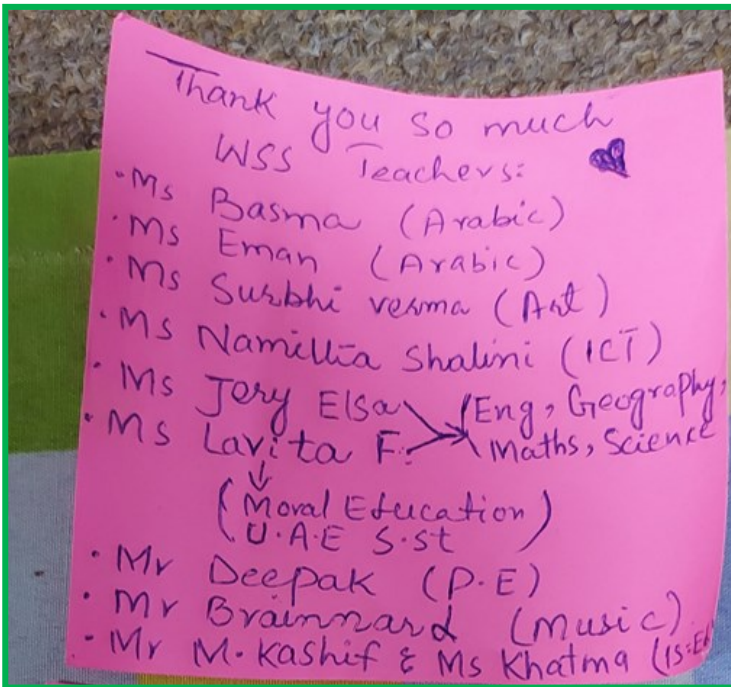 Thank you so much
WSS Teachers:
• Ms Basma (Arabic)
• Ms Eman (Arabic)
• Ms Surbhi verma (Art)
• Ms Namillia Shalini (ICT)
• Ms Jery Elsa (Eng, Geography,
• Ms Lavita F. Maths, Science
(Moral Education)
U.A.E S.st
• Mr Deepak (P.E)
• Mr Brainnard (Music)
• Mr M. Kashif & Ms Khatma (IS:Ed